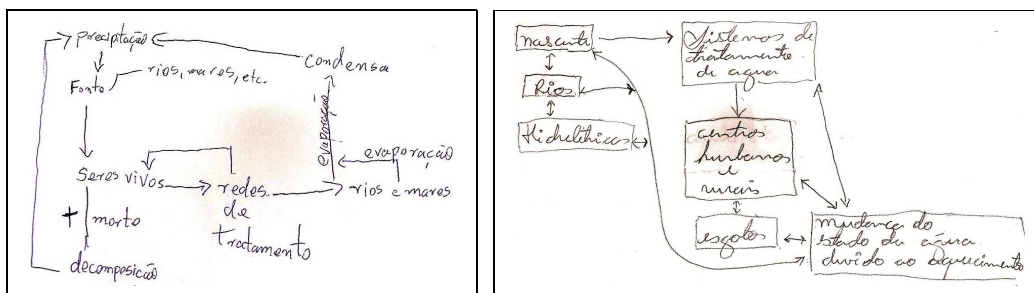 precipitação
condensa
Fonte
rios, mares, etc.
evaporação
evaporação
Seres vivos
redes
de
tratamento
rios e mares
morto
decomposição
nascente
Rios
Sistemas de
tratamento
de agua
centros
hurbanos
e
rurais
esgotos
mudança do
stado da água
divido ao aquecimento